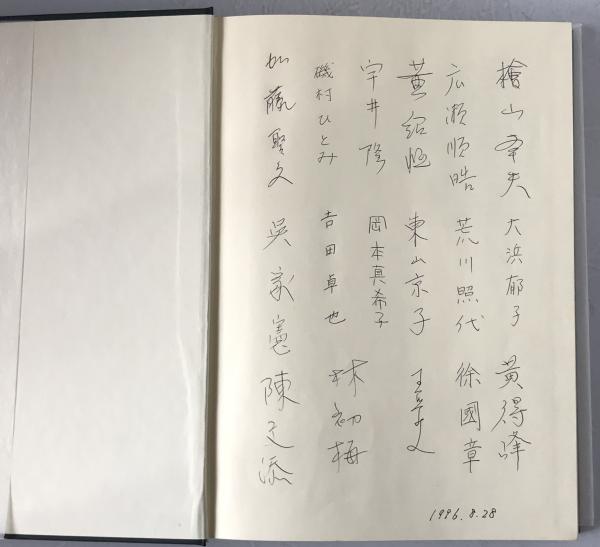 檜山幸夫 大浜郁子 黄得峰
広瀬順晧 荒川照代 徐國章
黄紹恆 東山京子
宇井隆 岡本真希子
磯村ひとみ 吉田卓也 林初梅
加藤聖文 吳家憲 陳文添
1996.8.28